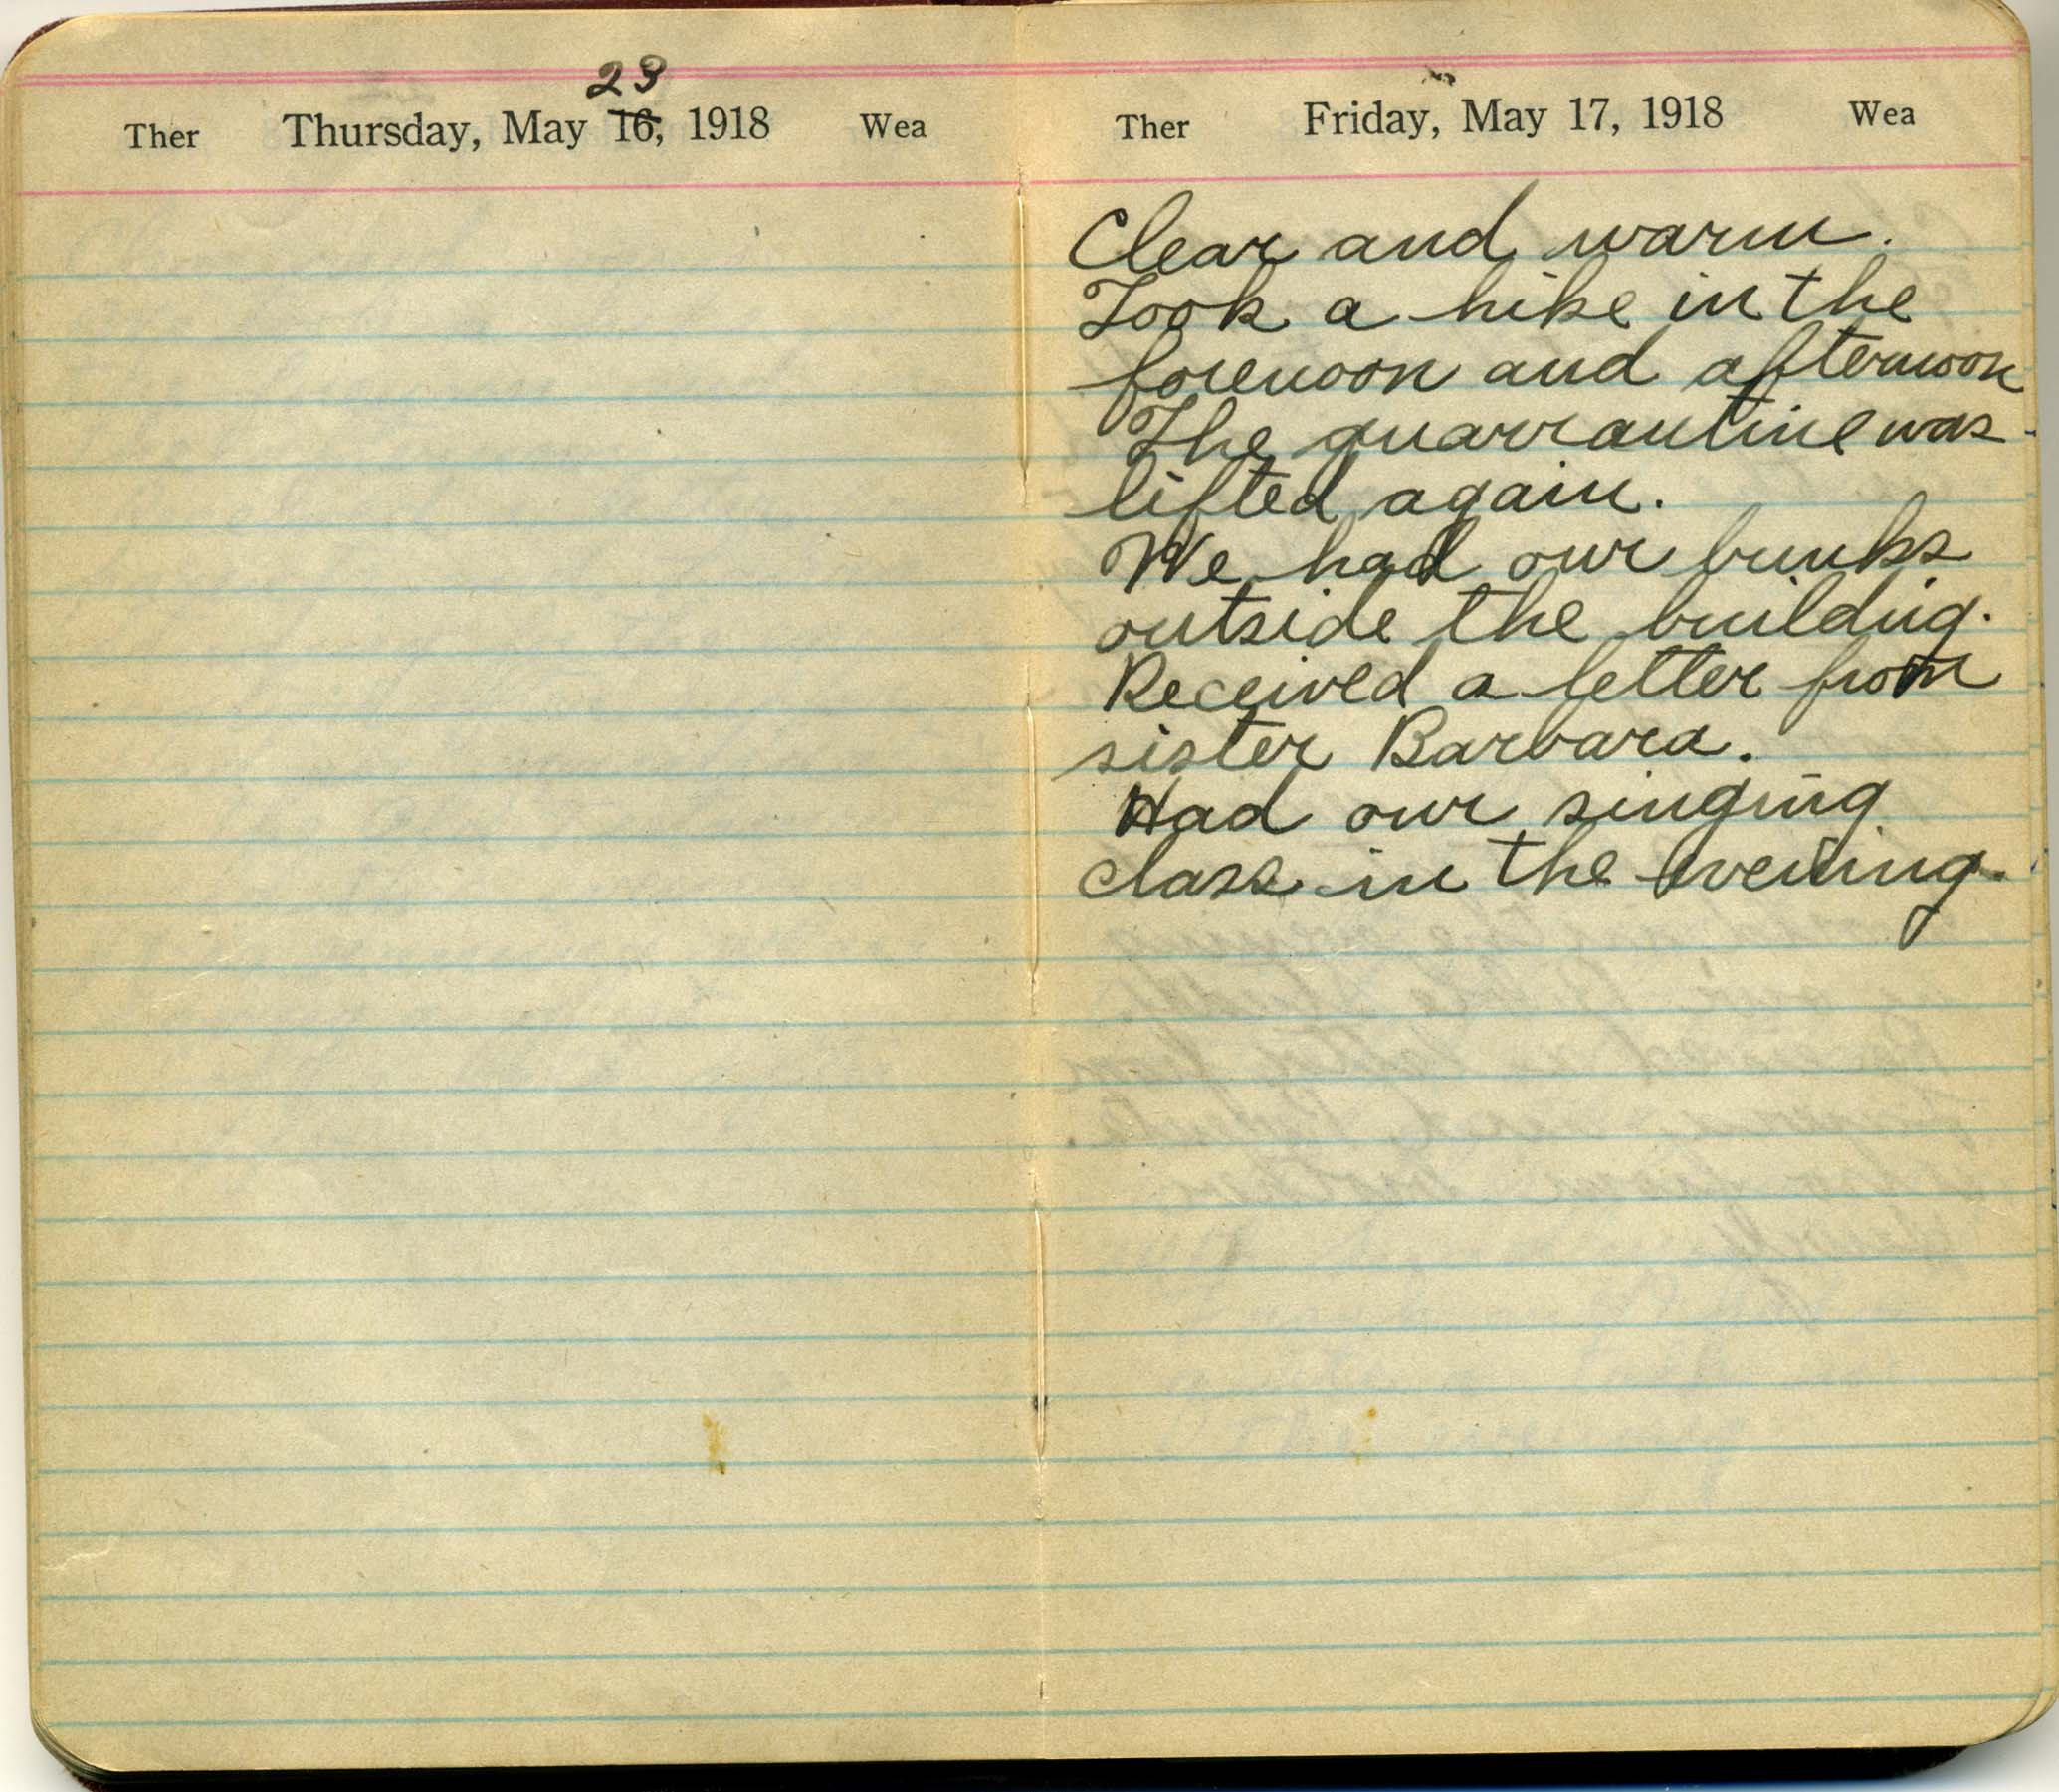 23
Ther Thursday, May 16, 1918 Wea
Ther Friday, May 17, 1918 Wea
Clear and warm.
Took a hike in the
forenoon and afternoon
The quarrantine was
lifted again.
We had our bunks
outside the buildig.
Received a letter from
sister Barbara.
Had our singing
class in the evening.